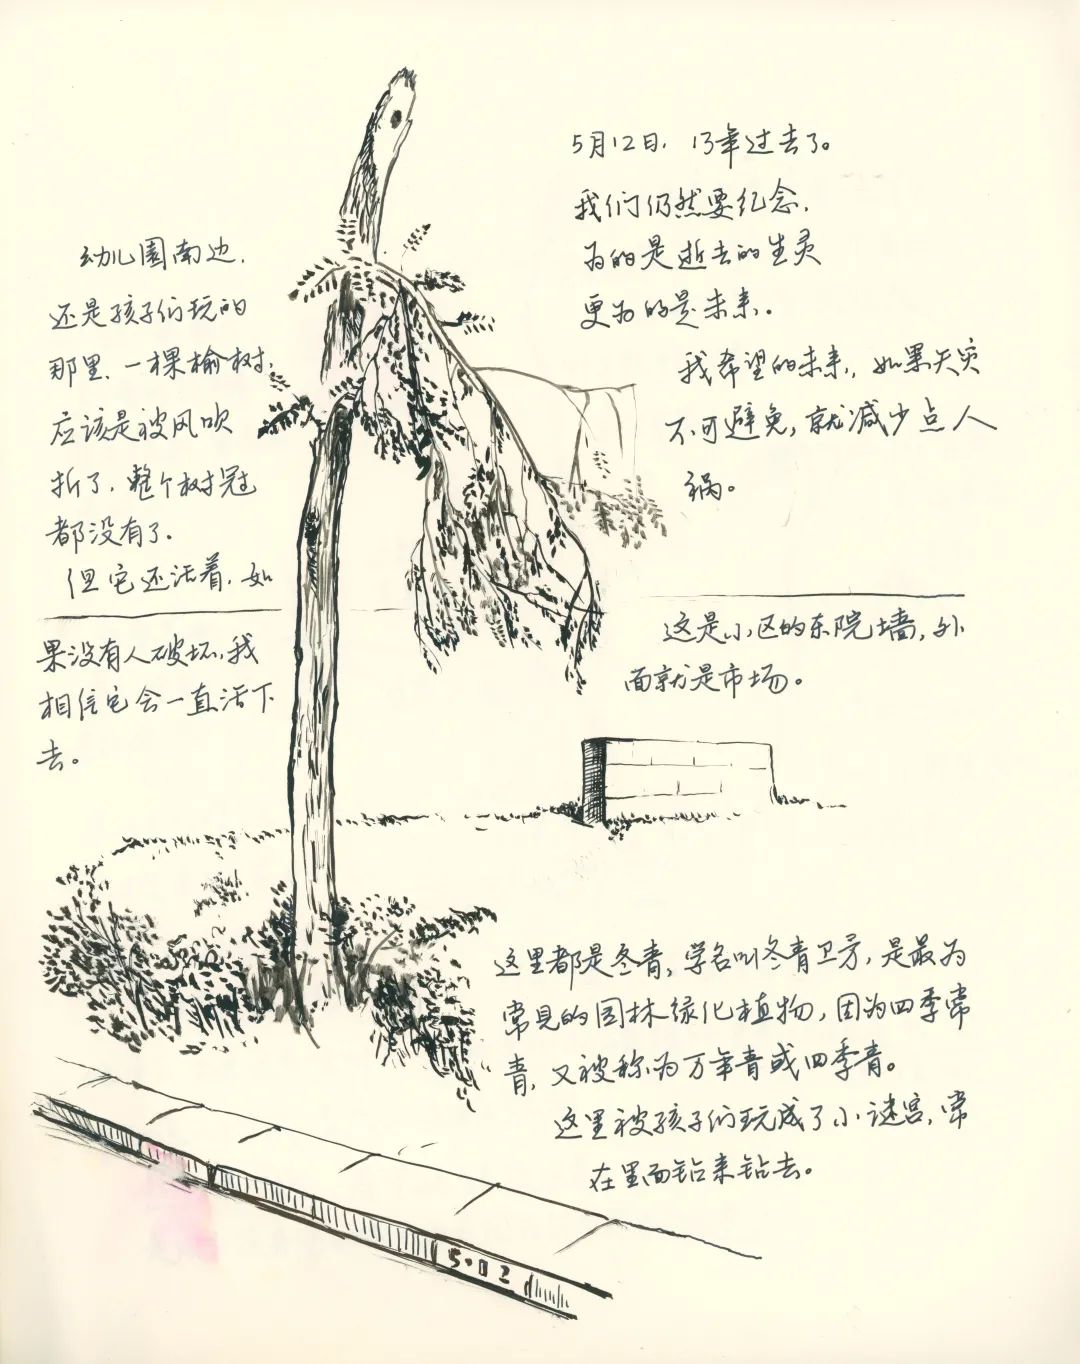 5月12日，13年过去了。
我们仍然要纪念，
为的是逝去的生灵
更为的是未来。
我希望的未来，如果天灾
不可避免，就减少点人
祸。
幼儿園南边，
还是孩子们玩的
那里，一棵榆树，
应该是被风吹
折了，整个树冠
都没有了。
但它还活着，如
果没有人破坏，我
相信它会一直活下
去。
这是小区的东院墙，外
面就是市场。
这里都是冬青，学名叫冬青卫矛，是最为
常见的园林绿化植物，因为四季常
青，又被称为万年青或四季青。
这里被孩子们玩成了小谜宫，常
在里面钻来钻去。